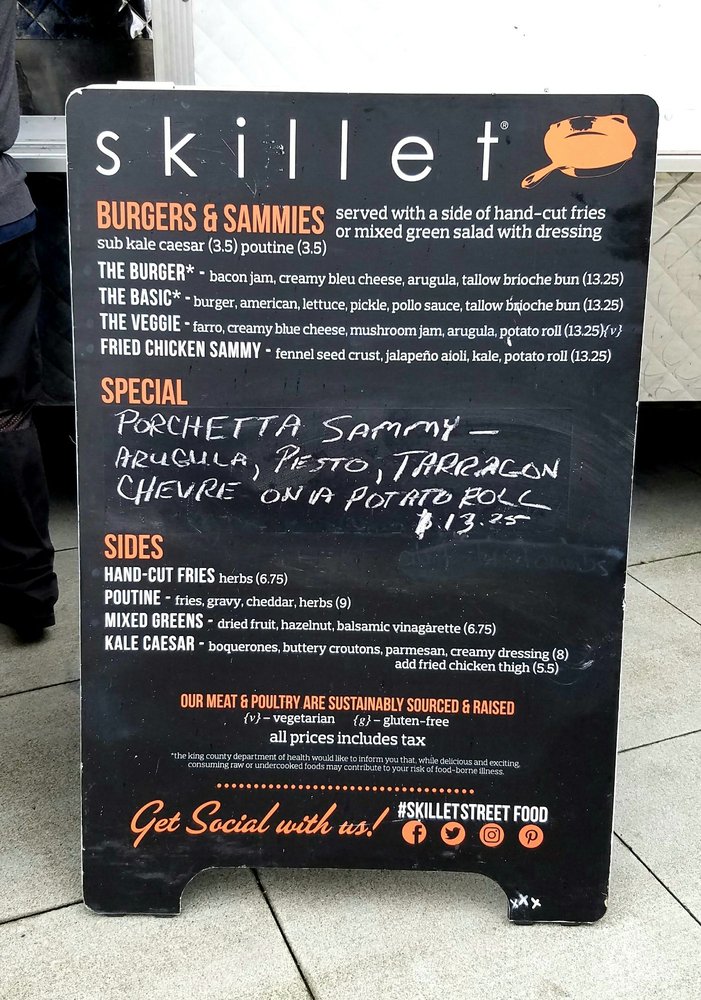 skillet®
BURGERS & SAMMIES served with a side of hand-cut fries
or mixed green salad with dressing
sub kale caesar (3.5) poutine (3.5)
THE BURGER* - bacon jam, creamy bleu cheese, arugula, tallow brioche bun (13.25)
THE BASIC* - burger, american, lettuce, pickle, pollo sauce, tallow brioche bun (13.25)
THE VEGGIE - farro, creamy blue cheese, mushroom jam, arugula, potato roll (13.25){v}
FRIED CHICKEN SAMMY - fennel seed crust, jalapeño aioli, kale, potato roll (13.25)
SPECIAL
PORCHETTA SAMMY —
ARUGULA, PESTO, TARRAGON
CHEVRE ON A POTATO ROLL
$13.25
SIDES
HAND-CUT FRIES herbs (6.75)
POUTINE - fries, gravy, cheddar, herbs (9)
MIXED GREENS - dried fruit, hazelnut, balsamic vinagarette (6.75)
KALE CAESAR - boquerones, buttery croutons, parmesan, creamy dressing (8)
add fried chicken thigh (5.5)
OUR MEAT & POULTRY ARE SUSTAINABLY SOURCED & RAISED
{v} – vegetarian {g} – gluten-free
all prices includes tax
*the king county department of health would like to inform you that, while delicious and exciting,
consuming raw or undercooked foods may contribute to your risk of food-borne illness.
Get Social with us! #SKILLETSTREET FOOD
xXx